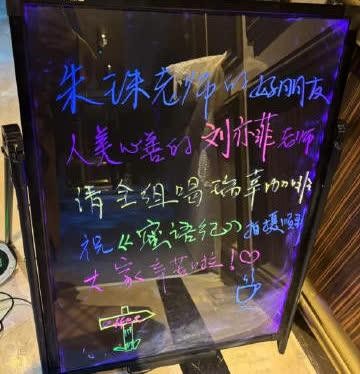 朱珠老师的好朋友
人美心善的刘亦菲老师
请全组喝瑞幸咖啡
祝《蜜语纪》拍摄顺利
大家辛苦啦！♡